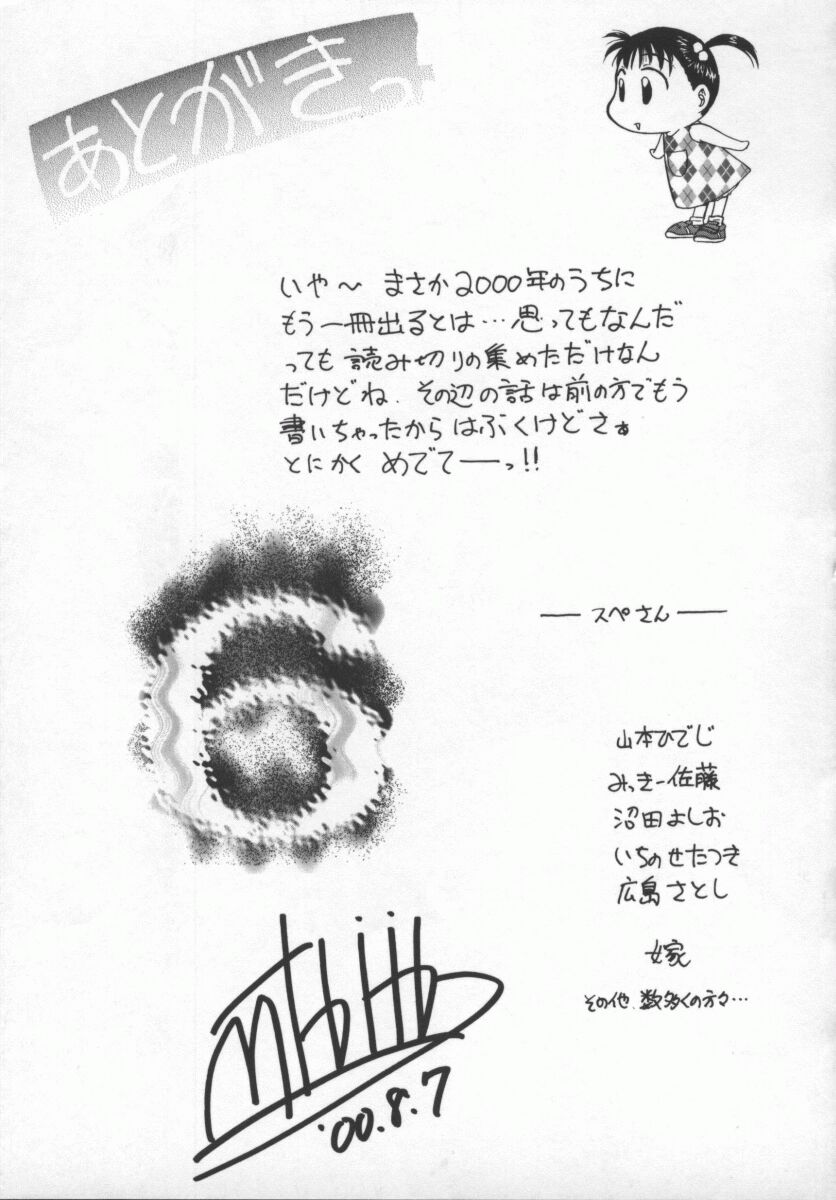 あとがきっ
いや〜 まさか2000年のうちに
もう一冊出るとは…思ってもなんだ
っても 読み切りの集めただけなん
だけどね、その辺の話は前の方でもう
書いちゃったから はぶくけどさぁ
とにかく めでてーっ!!
6
— スペさん —
山本ひでじ
みっきー佐藤
沼田よしお
いちのせたつき
広島さとし
嫁
その他、数多くの方々…
'00.8.7